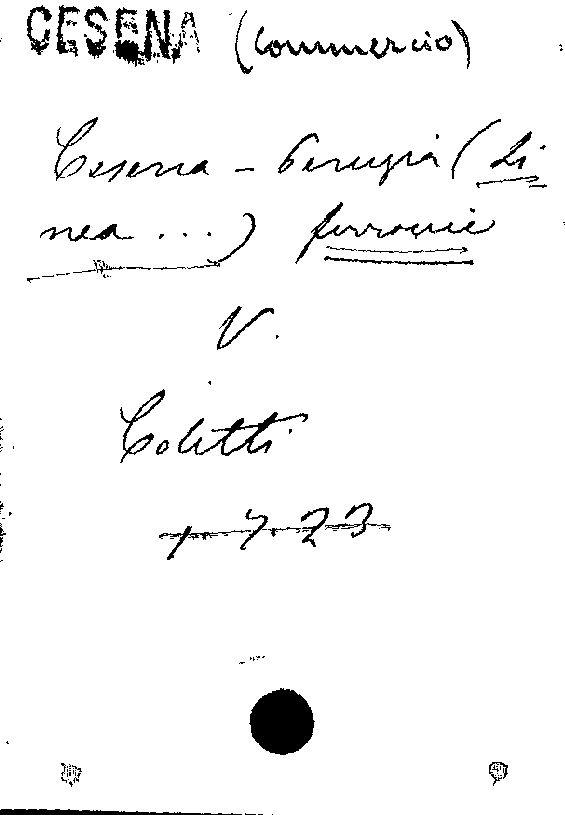 CESENA (commercio)
Cesena - Perugia (Li
nea ...) ferrovie
V.
Coletti
1 7.23